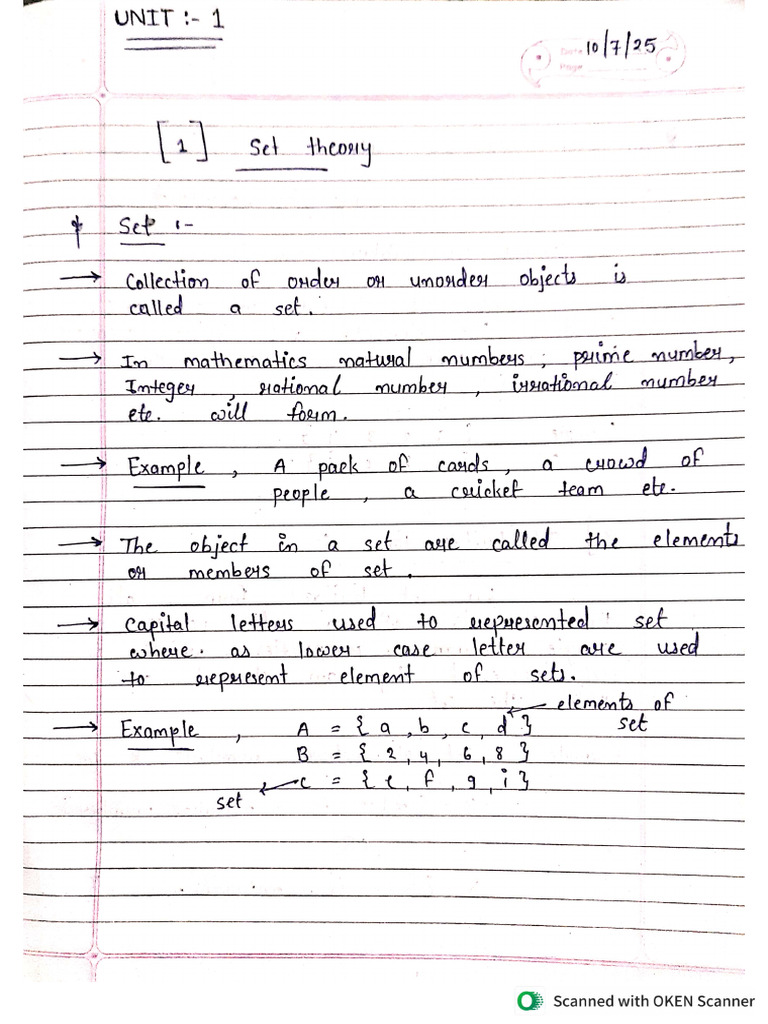 UNIT :- 1
Date 10/7/25
Page
[1] Set theory
Set :-
→ Collection of order or unorder objects is
called a set.
→ In mathematics natural numbers, prime number,
Integer, rational number, irrational number
etc. will form.
→ Example, A pack of cards, a crowd of
people, a cricket team etc.
→ The object in a set are called the elements
or members of set.
→ Capital letters used to represented set
where as lower case letter are used
to represent element of sets.
← elements of
→ Example, A = {a, b, c, d} set
B = {2, 4, 6, 8}
← C = {e, f, g, i}
set
Scanned with OKEN Scanner